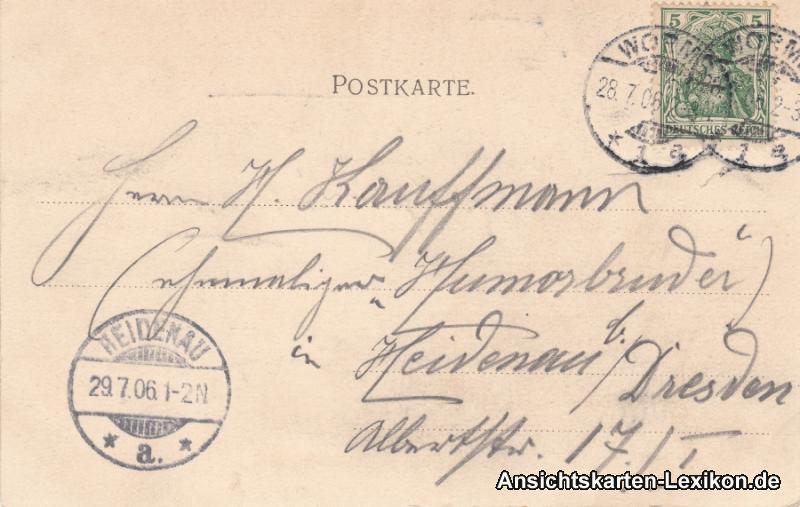 5 5
WORMS WORMS
28.7.06
2-3
DEUTSCHES REICH
* 1 a * 1 a
POSTKARTE.
Herrn H. Kauffmann
(ehemaliger „Humorbruder“)
in Heidenau b/ Dresden
Albertstr. 17/I
HEIDENAU
29.7.06.1-2N
* a. *
Ansichtskarten-Lexikon.de